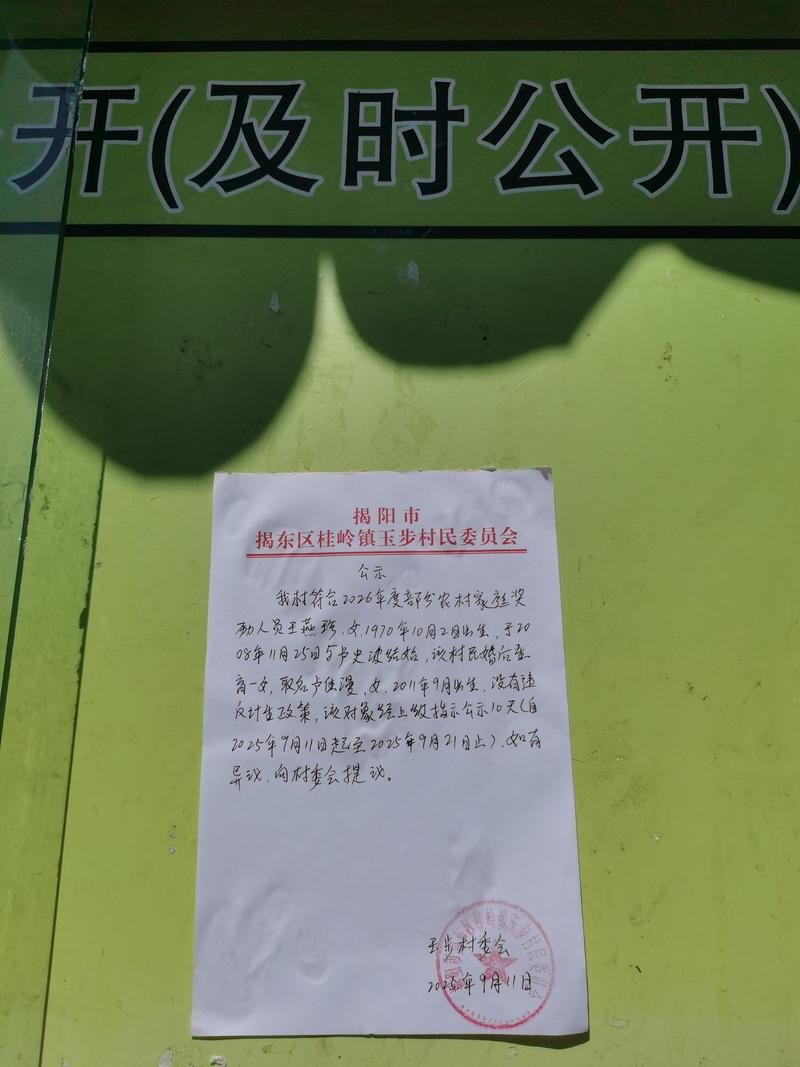 开(及时公开)
揭阳市
揭东区桂岭镇玉步村民委员会
公示
我村符合2026年度部分农村家庭奖
励人员王燕珍,女,1970年10月2日出生,于20
08年11月25日与卢史波结婚,该村民婚后生
育一女,取名卢佳漫,女,2011年9月出生,没有违
反计生政策,该对象经上级指示公示10天(自
2025年9月11日起至2025年9月21日止),如有
异议,向村委会提议。
玉步村委会
2025年9月11日